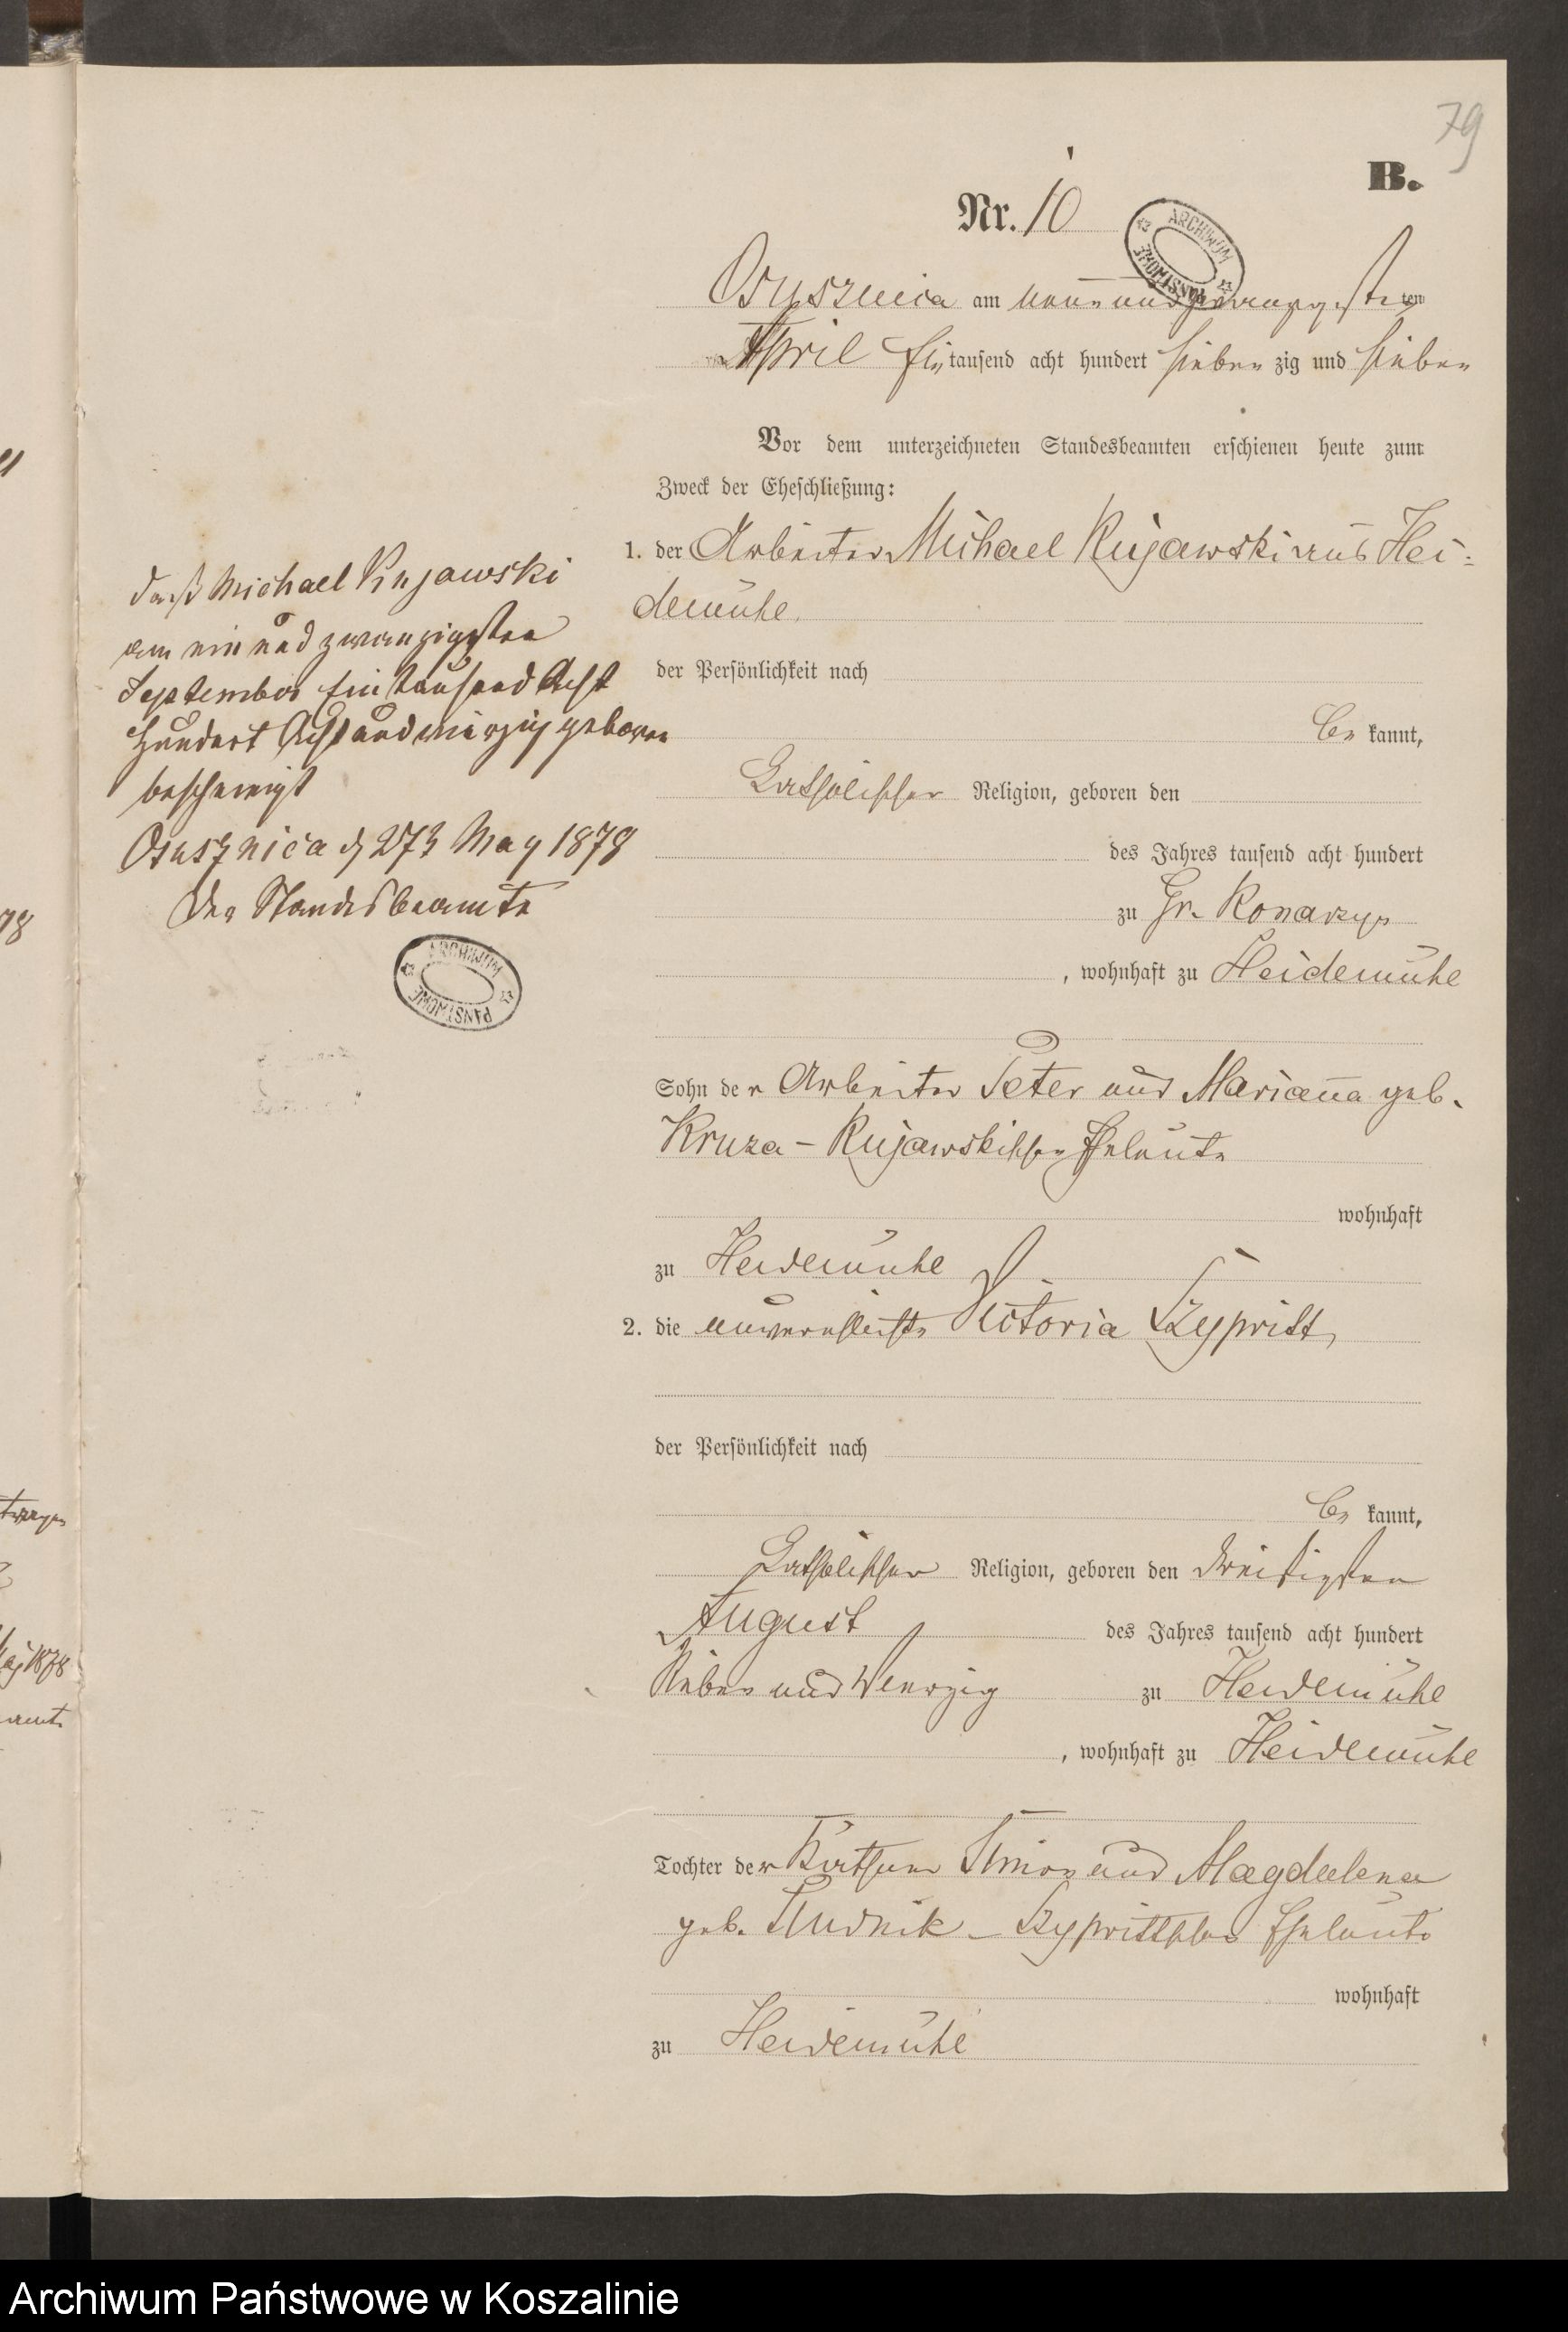 79
B.
Nr. 10
ARCHIWUM PAŃSTWOWE
Osusznica am neun und zwanzigsten ten
April Ein tausend acht hundert sieben zig und sieben
Vor dem unterzeichneten Standesbeamten erschienen heute zum
Zweck der Eheschließung:
1. der Arbeiter Michael Kujawski aus Hei-
demühle,
der Persönlichkeit nach
be kannt,
Catholischer Religion, geboren den
des Jahres tausend acht hundert
zu Gr. Konarzyn
, wohnhaft zu Heidemühle
Sohn der Arbeiter Peter und Marianna geb.
Kruza - Kujawskischen Eheleute
wohnhaft
zu Heidemühle
2. die unverehelichte Victoria Szypritt,
der Persönlichkeit nach
be kannt,
Catholischer Religion, geboren den dreißigsten
August des Jahres tausend acht hundert
Sieben und Vierzig zu Heidemühle
, wohnhaft zu Heidemühle
Tochter der Käthner Simon und Magdalena
geb. Studnik - Eheleute
wohnhaft
zu Heidemühle
daß Michael Kujawski
am ein und zwanzigsten
September Ein tausend Acht
Hundert Acht und vierzig geboren
bescheinigt
Osusznica d 27t May 1878
Der Standesbeamte
ARCHIWUM PAŃSTWOWE
78
May 1878
Archiwum Państwowe w Koszalinie